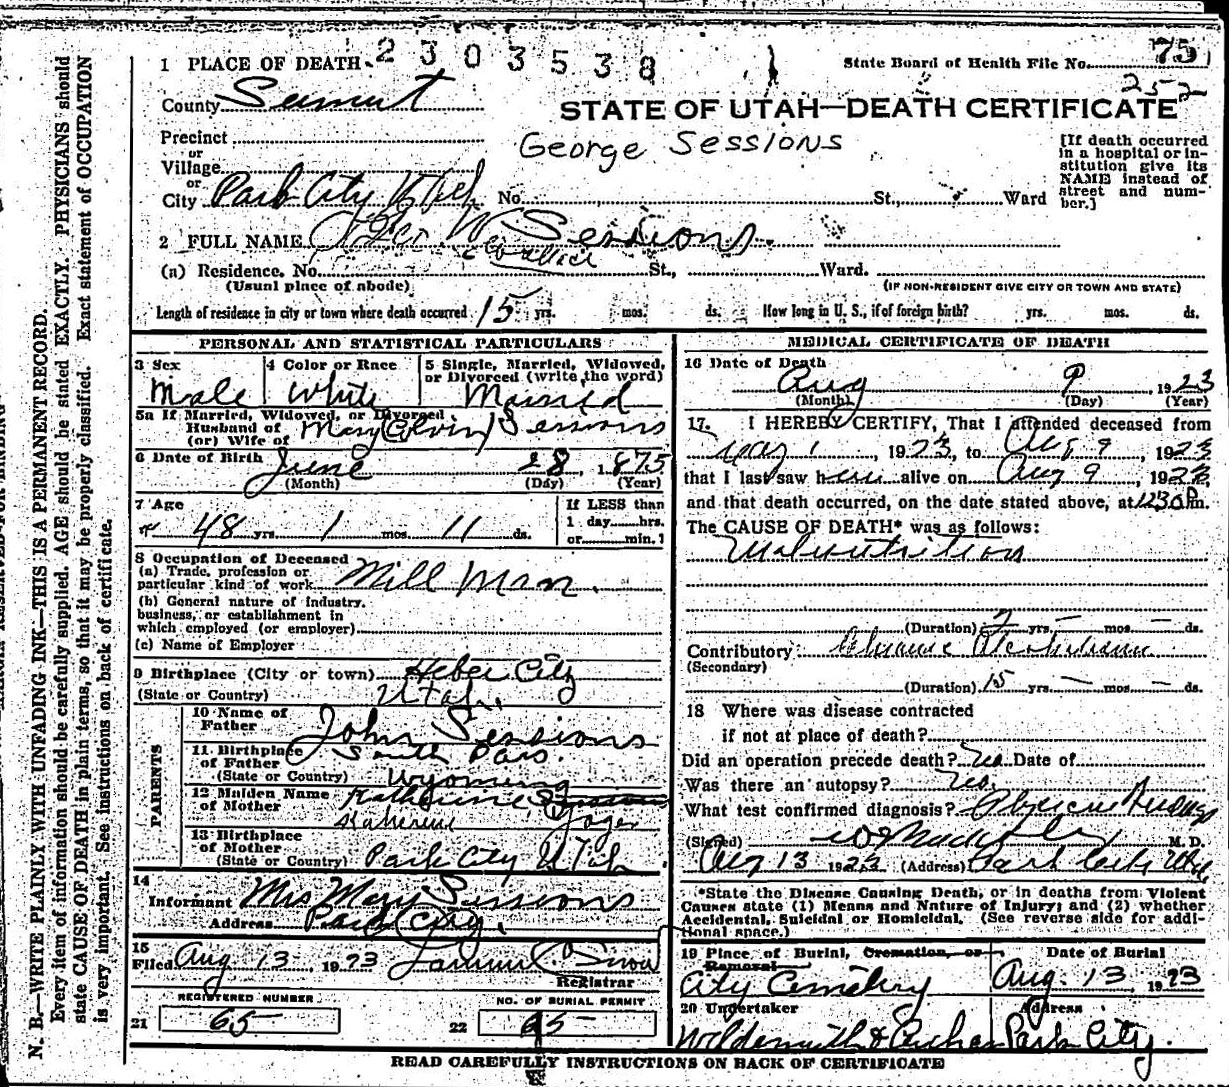 2303538
1 PLACE OF DEATH
State Board of Health File No. 75
252
County Summit
STATE OF UTAH—DEATH CERTIFICATE
Precinct
George Sessions
or
Village
or
City Park City Utah No. St., Ward
[If death occurred
in a hospital or in-
stitution give its
NAME instead of
street and num-
ber.]
2 FULL NAME Geo W Sessions.
(a) Residence. No. St., Ward.
(Usual place of abode)
(IF NON-RESIDENT GIVE CITY OR TOWN AND STATE)
Length of residence in city or town where death occurred 15 yrs. mos. ds. How long in U. S., if of foreign birth? yrs. mos. ds.
PERSONAL AND STATISTICAL PARTICULARS
3 Sex
Male
4 Color or Race
White
5 Single, Married, Widowed,
or Divorced (write the word)
Married
5a If Married, Widowed, or Divorced
Husband of
(or) Wife of
Mary Colvin Sessions
6 Date of Birth June 28, 1875
(Month) (Day) (Year)
7 Age
48 yrs. 1 mos. 11 ds.
If LESS than
1 day hrs.
or min.?
8 Occupation of Deceased
(a) Trade, profession or
particular kind of work Mill Man.
(b) General nature of industry,
business, or establishment in
which employed (or employer)
(c) Name of Employer
9 Birthplace (City or town) Heber City
(State or Country) Utah.
PARENTS
10 Name of
Father John Sessions
11 Birthplace
of Father South Pass.
(State or Country) Wyoming
12 Maiden Name
of Mother Katherine Sessions
Katherine
13 Birthplace
of Mother
(State or Country) Park City Utah
14
Informant Mrs Mary Sessions
Address Park City.
15
Filed Aug 13, 1923
Registrar
REGISTERED NUMBER
21 65
NO. OF BURIAL PERMIT
22 65
MEDICAL CERTIFICATE OF DEATH
16 Date of Death
Aug 9 1923
(Month) (Day) (Year)
17. I HEREBY CERTIFY, That I attended deceased from
May 1, 1923, to Aug 9, 1923
that I last saw him alive on Aug 9, 1923,
and that death occurred, on the date stated above, at 1230 Pm.
The CAUSE OF DEATH* was as follows:
Malnutrition
(Duration) 2 yrs. — mos. — ds.
Contributory Chronic Alcoholism
(Secondary)
(Duration) 15 yrs. — mos. — ds.
18 Where was disease contracted
if not at place of death?
Did an operation precede death? No Date of
Was there an autopsy? No.
What test confirmed diagnosis? Physical
(Signed) M. D.
Aug 13 1923 (Address) Park City Utah,
*State the Disease Causing Death, or in deaths from Violent
Causes state (1) Means and Nature of Injury; and (2) whether
Accidental, Suicidal or Homicidal. (See reverse side for addi-
tional space.)
19 Place of Burial, Cremation, or
Removal
City Cemetery
Date of Burial
Aug. 13 1923
20 Undertaker
Address
Park City.
READ CAREFULLY INSTRUCTIONS ON BACK OF CERTIFICATE
N. B.—WRITE PLAINLY WITH UNFADING INK—THIS IS A PERMANENT RECORD.
Every item of information should be carefully supplied. AGE should be stated EXACTLY. PHYSICIANS should
state CAUSE OF DEATH in plain terms, so that it may be properly classified. Exact statement of OCCUPATION
is very important. See instructions on back of certificate.